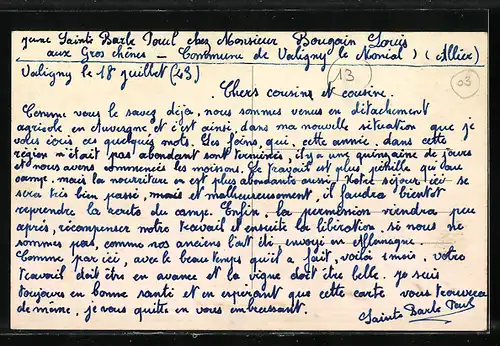 jeune Sainte Barbe Paul chez Monsieur Bougain Louis
aux Gros chênes - Commune de Valigny le Monial) (Allier)
Valigny le 18 juillet (43)
13
03
Chers cousins et cousine.
Comme vous le savez déja, nous sommes venus en détachement
agricole en Auvergne et c'est ainsi, dans ma nouvelle situation que je
vous écris ces quelques mots. Les foins, qui, cette année, dans cette
région n'était pas abondant sont terminés, il y a une quinzaine de jours
et nous avons commencés les moissons. Le travail est plus pénible qu'au
camp, mais la nourriture en est plus abondante aussi. Notre séjour ici se
sera très bien passé, mais et malheureusement, il faudra bientot
reprendre la route du camp. Enfin, la permission viendra peu
après, récompenser notre travail et ensuite la libération, si nous ne
sommes pas, comme nos anciens l'ont été, envoyé en Allemagne.
Comme par ici, avec le beau temps qu'il a fait, voila 1 mois, votre
travail doit être en avance et la vigne doit être belle. Je suis
toujours en bonne santé et en espérant que cette carte vous trouvera
de meme, je vous quitte en vous embrassant.
Sainte Barbe Paul